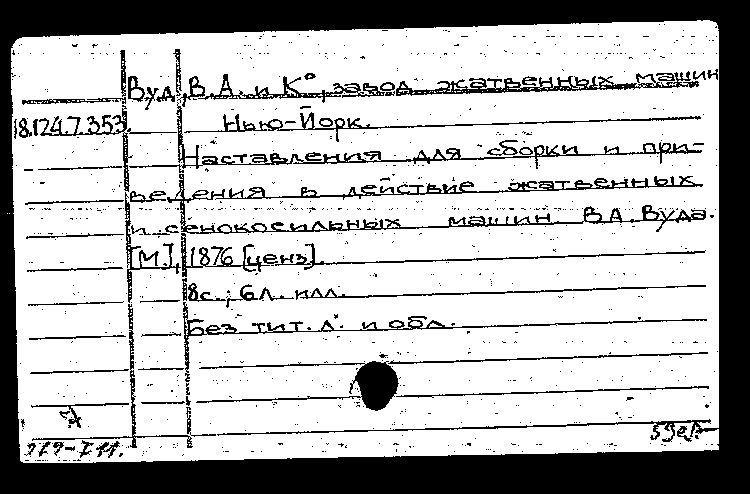 Вуд, В.А. и К°, завод жатвенных машин
18.124.7.353. Нью-Йорк.
Наставления для сборки и при-
ведения в действие жатвенных
и сенокосильных машин В.А. Вуда.
[М.], 1876 [ценз].
8с.; 6л. илл.
Без тит. л. и обл.